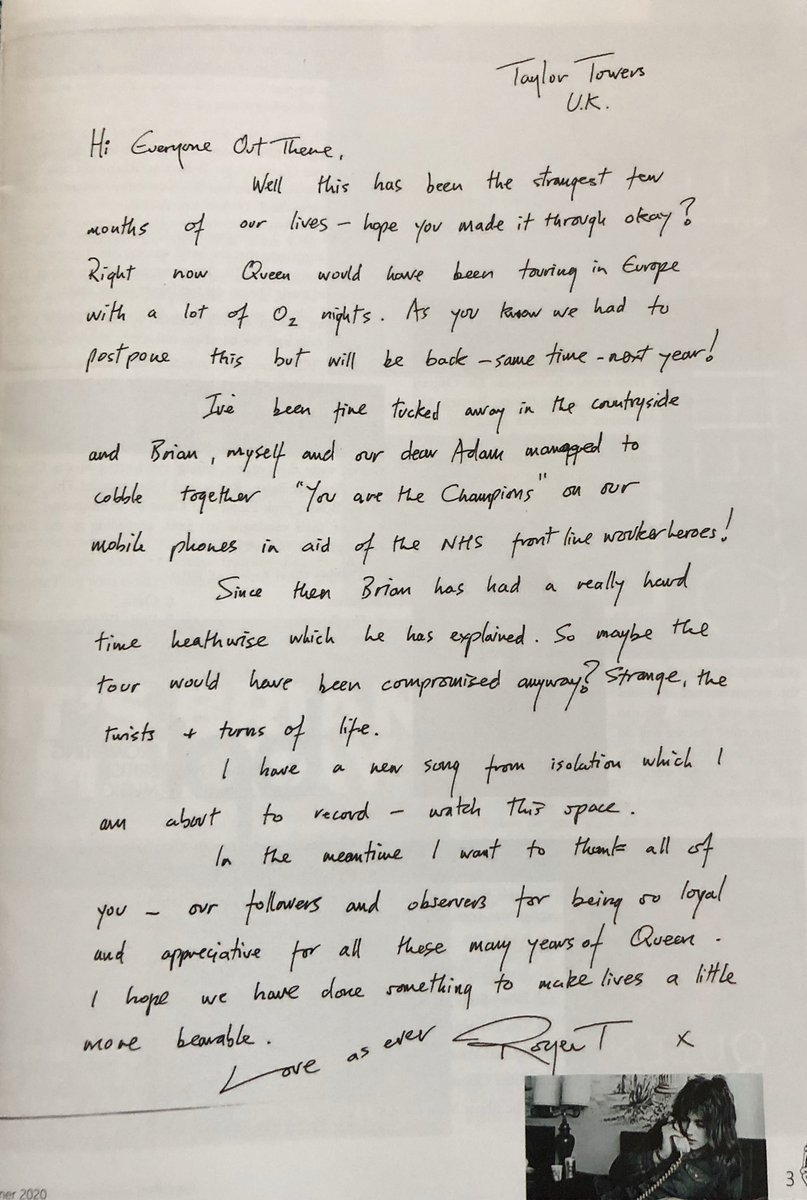 Taylor Towers
U.K.
Hi Everyone Out There,
Well this has been the strangest few
months of our lives – hope you made it through okay?
Right now Queen would have been touring in Europe
with a lot of O2 nights. As you know we had to
postpone this but will be back – same time – next year!
I've been fine tucked away in the countryside
and Brian, myself and our dear Adam managed to
cobble together "You are the Champions" on our
mobile phones in aid of the NHS front line worker heroes!
Since then Brian has had a really hard
time heathwise which he has explained. So maybe the
tour would have been compromised anyway? Strange, the
twists + turns of life.
I have a new song from isolation which I
am about to record – watch this space.
In the meantime I want to thank all of
you – our followers and observers for being so loyal
and appreciative for all these many years of Queen.
I hope we have done something to make lives a little
more bearable.
Love as ever Roger T x
3
ner 2020